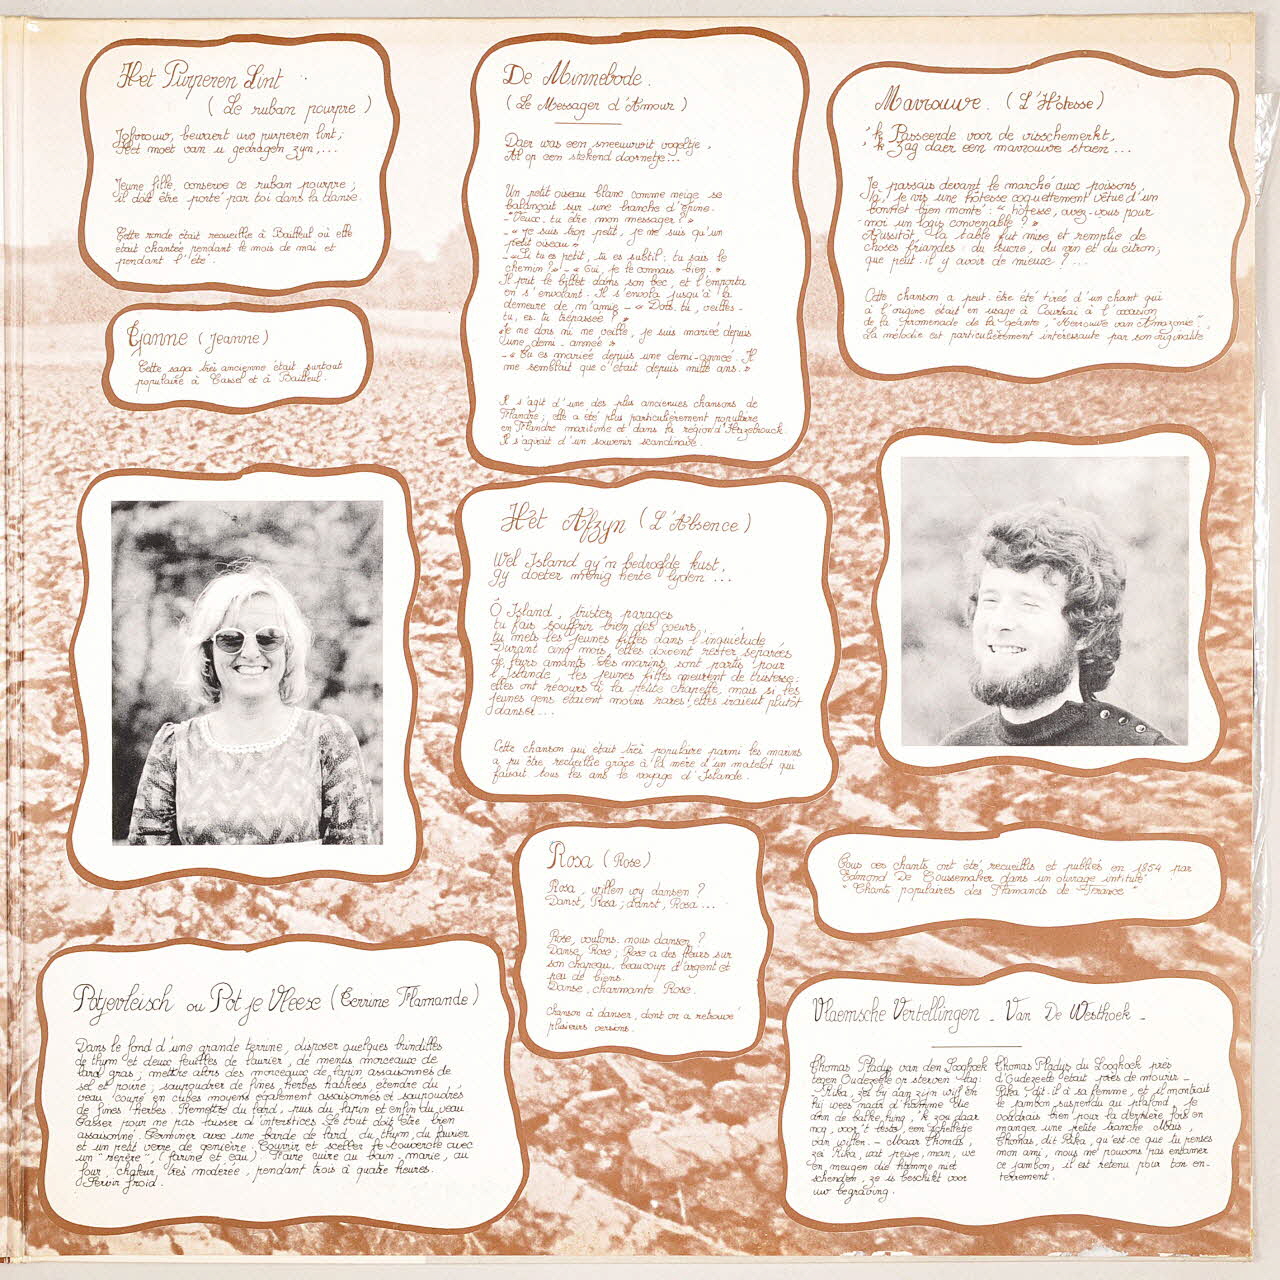 Het Purperen Lint
(Le ruban pourpre)
Jofvrouw, bewaert uw purperen lint;
Het moet van u gedragen zyn,...
Jeune fille, conserve ce ruban pourpre;
il doit être porté par toi dans la danse.
Cette ronde était recueillie à Bailleul où elle
était chantée pendant le mois de mai et
pendant l'été.
Tjanne (Jeanne)
Cette saga très ancienne était surtout
populaire à Cassel et à Bailleul.
De Minnebode.
(Le Messager d'Amour)
Daer was een sneeuwwit vogeltje,
Al op een stekend doornetje...
Un petit oiseau blanc comme neige se
balançait sur une branche d'épine.
- "Veux-tu être mon messager?"
- "je suis trop petit, je ne suis qu'un
petit oiseau"
- "Si tu es petit, tu es subtil: tu sais le
chemin?" - "Oui, je le connais bien."
Il prit le billet dans son bec, et l'emporta
en s'envolant. Il s'envola jusqu'à la
demeure de m'amie - "Dors-tu, veilles-
tu, es-tu trépassée?"
"je ne dors ni ne veille, je suis mariée depuis
une demi-année"
- "Tu es mariée depuis une demi-année. Il
me semblait que c'était depuis mille ans."
Il s'agit d'une des plus anciennes chansons de
Flandre; elle a été plus particulièrement populaire
en Flandre maritime et dans la région d'Hazebrouck.
Il s'agirait d'un souvenir scandinave.
Mavrouwe. (L'Hôtesse)
'k Passeerde voor de visschemerkt,
'k Zag daer een mavrouwe staen...
Je passais devant le marché aux poissons,
là, je vis une hôtesse coquettement vêtue d'un
bonnet bien monté: "hôtesse, avez-vous pour
moi un logis convenable?"
Aussitôt, la table fut mise et remplie de
choses friandes: du sucre, du vin et du citron;
que peut-il y avoir de mieux?...
Cette chanson a peut-être été tirée d'un chant qui
à l'origine était en usage à Courtrai à l'occasion
de la Promenade de la géante, "Mevrouwe van Amazonie".
La mélodie est particulièrement intéressante par son originalité
Het Afzyn (L'Absence)
Wel Island gy'n bedroefde kust,
gy doeter menig herte lyden...
Ô Island, tristes parages
tu fais souffrir bien des coeurs,
tu mets les jeunes filles dans l'inquiétude
Durant cinq mois, elles doivent rester séparées
de leurs amants. Les marins sont partis pour
l'Islande, les jeunes filles meurent de tristesse;
elles ont recours à la petite chapelle, mais si les
jeunes gens étaient moins rares, elles iraient plutôt
danser...
Cette chanson qui était très populaire parmi les marins
a pu être recueillie grâce à la mère d'un matelot qui
faisait tous les ans le voyage d'Islande.
Rosa (Rose)
Rosa, willen wy dansen?
Danst, Rosa; danst, Rosa...
Rose, voulons-nous danser?
Danse, Rose; Rose a des fleurs sur
son chapeau, beaucoup d'argent et
peu de biens.
Danse, charmante Rose.
Chanson à danser, dont on a retrouvé
plusieurs versions.
Tous ces chants ont été recueillis et publiés en 1854 par
Edmond De Coussemaker dans un ouvrage intitulé
"Chants populaires des Flamands de France"
Potjevleisch ou Pot je Vleese (Terrine Flamande)
Dans le fond d'une grande terrine, disposer quelques brindilles
de thym et deux feuilles de laurier, de menus morceaux de
lard gras; mettre alors des morceaux de lapin assaisonnés de
sel et poivre; saupoudrer de fines herbes hachées, étendre du
veau coupé en cubes moyens également assaisonnés et saupoudrés
de fines herbes. Remettre du lard, puis du lapin et enfin du veau
Tasser pour ne pas laisser d'interstices. Le tout doit être bien
assaisonné. Terminer avec une bande de lard, du thym, du laurier
et un petit verre de genièvre. Couvrir et sceller le couvercle avec
un "repère", (farine et eau). Faire cuire au bain-marie, au
four, chaleur très modérée, pendant trois à quatre heures.
Servir froid.
Vlaemsche Vertellingen - Van De Westhoek -
Thomas Pladys van den Looghoek
tegen Oudezeele op sterven lag:
Rika, zei hy aan zyn wijf en
hij wees naar d'hamme die
aan de balke hing, 'k zou daar
nog, voor 't leste, een schelletje
van willen. - Maar Thomas,
zei Rika, wat peisje, man, we
en meugen die hamme niet
schenden, ze is beschikt voor
uw begraving.
Thomas Pladys du Looghoek près
d'Oudezeele était près de mourir -
Rika, dit-il à sa femme, et il montrait
le jambon suspendu au plafond, je
voudrais bien pour la dernière fois en
manger une petite tranche. Mais,
Thomas, dit Rika, qu'est-ce que tu penses
mon ami, nous ne pouvons pas entamer
ce jambon, il est retenu pour ton en-
terrement.